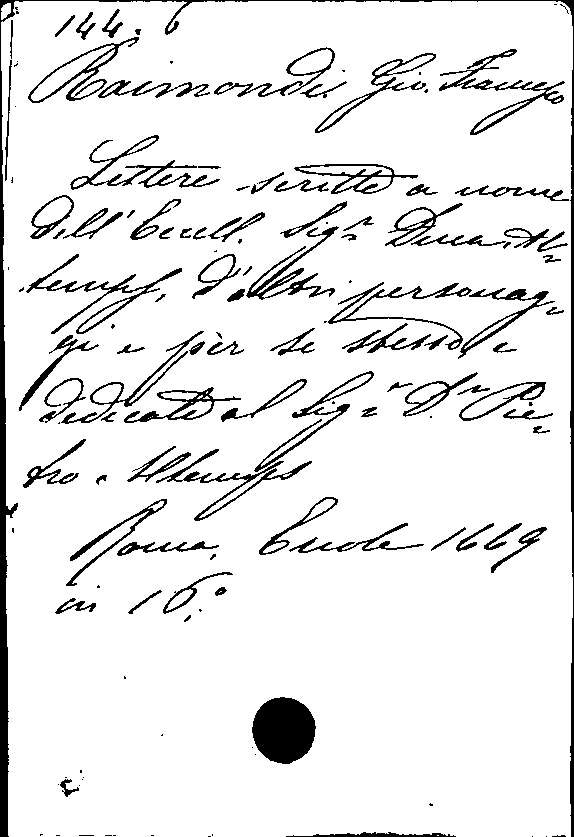 144. 6
Raimondi Gio. Francesco
Lettere scritte a nome
dell'Eccell. Sigr Duca Al=
temps, d'altri personag=
gi e per se stesso, e
dedicate al Sigr Dn Pie=
tro Altemps
Roma, Ercole 1669
in 16.o